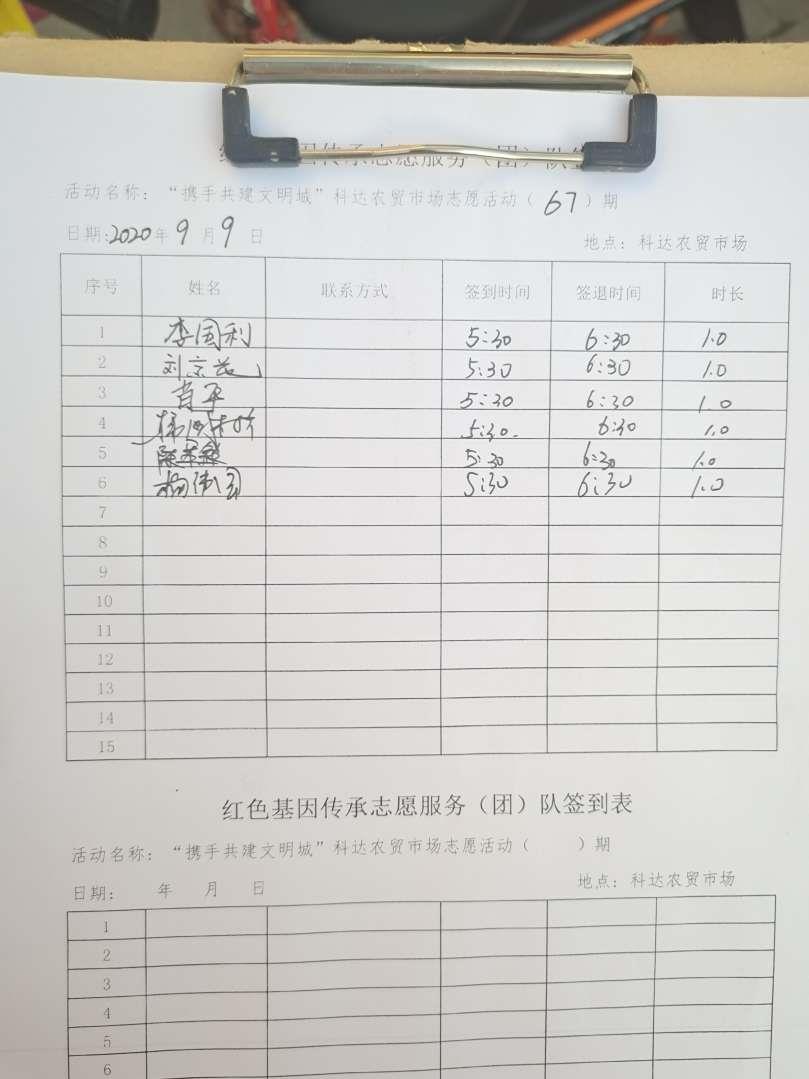 基因传承志愿服务（团）队签
活动名称：“携手共建文明城”科达农贸市场志愿活动（67）期
日期：2020年9月9日 地点：科达农贸市场
序号 姓名 联系方式 签到时间 签退时间 时长
1 李国利 5:30 6:30 1.0
2 刘京 5:30 6:30 1.0
3 肖平 5:30 6:30 1.0
4 5:30 6:30 1.0
5 5:30 6:30 1.0
6 杨 5:30 6:30 1.0
7
8
9
10
11
12
13
14
15
红色基因传承志愿服务（团）队签到表
活动名称：“携手共建文明城”科达农贸市场志愿活动（ ）期
日期： 年 月 日 地点：科达农贸市场
1
2
3
4
5
6